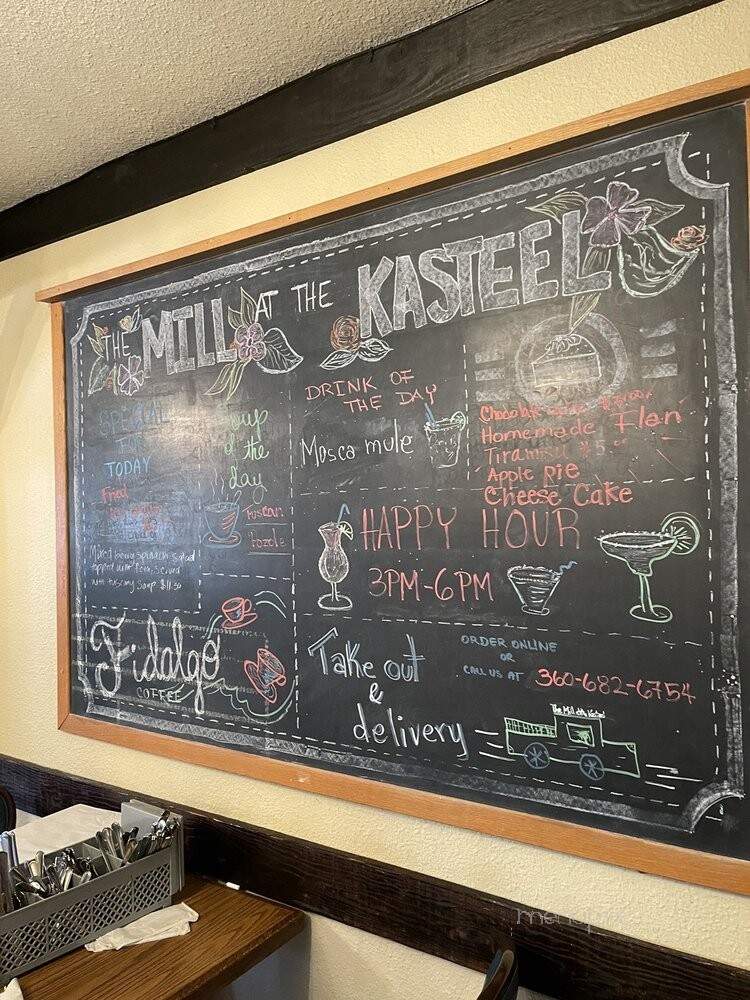 THE MILL AT THE KASTEEL
SPECIAL
FOR
TODAY
Fried
Mixed being spinach salad
topped with Pear, served
with tuscany soup $11.50
Soup
of the
day
Tuscan
Pozole
DRINK OF
THE DAY
Mosca mule
Chocolate
Homemade Flan
Tiramisu $5
Apple Pie
Cheese Cake
HAPPY HOUR
3PM-6PM
Fidalgo
COFFEE
Take out
&
delivery
ORDER ONLINE
OR
CALL US AT 360-682-6754
The Mill at the Kasteel